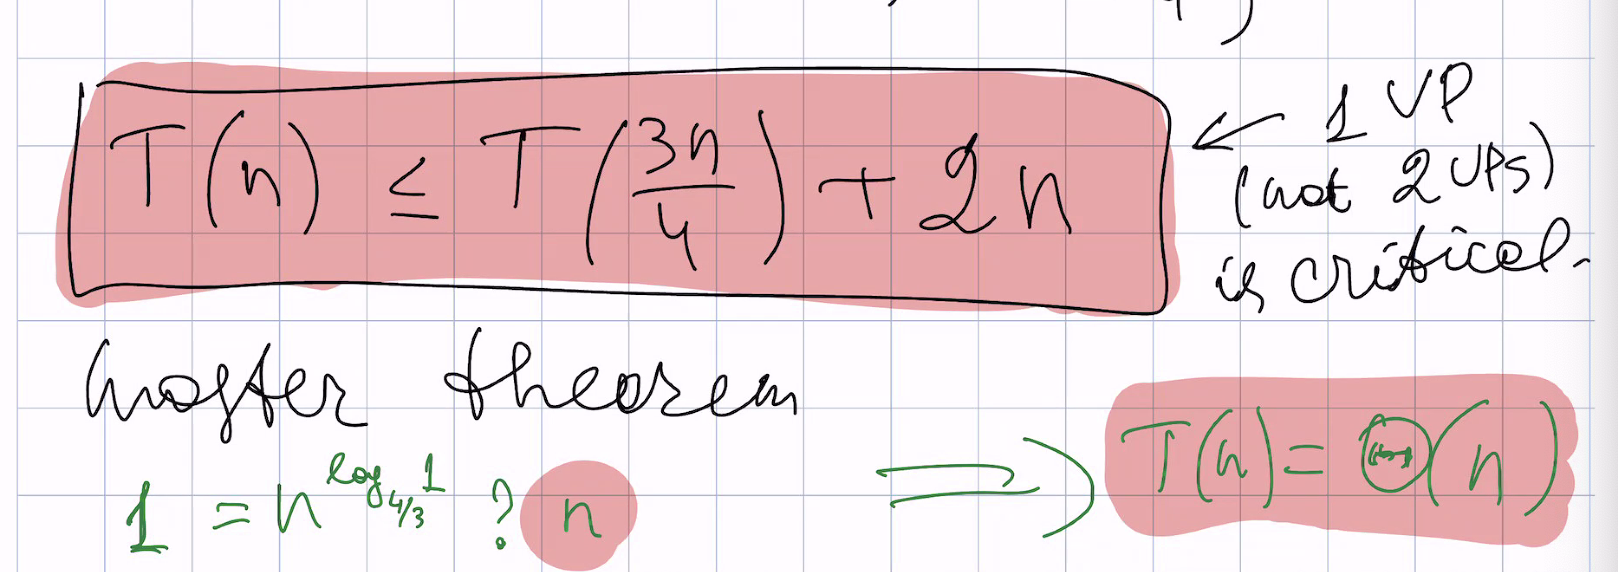 T(n) ≤ T(3n/4) + 2n
← 1 UP
(not 2 UPs)
is critical.
master theorem
1 = n^{log_{4/3} 1} ? n
⇒ T(n) = Θ(n)